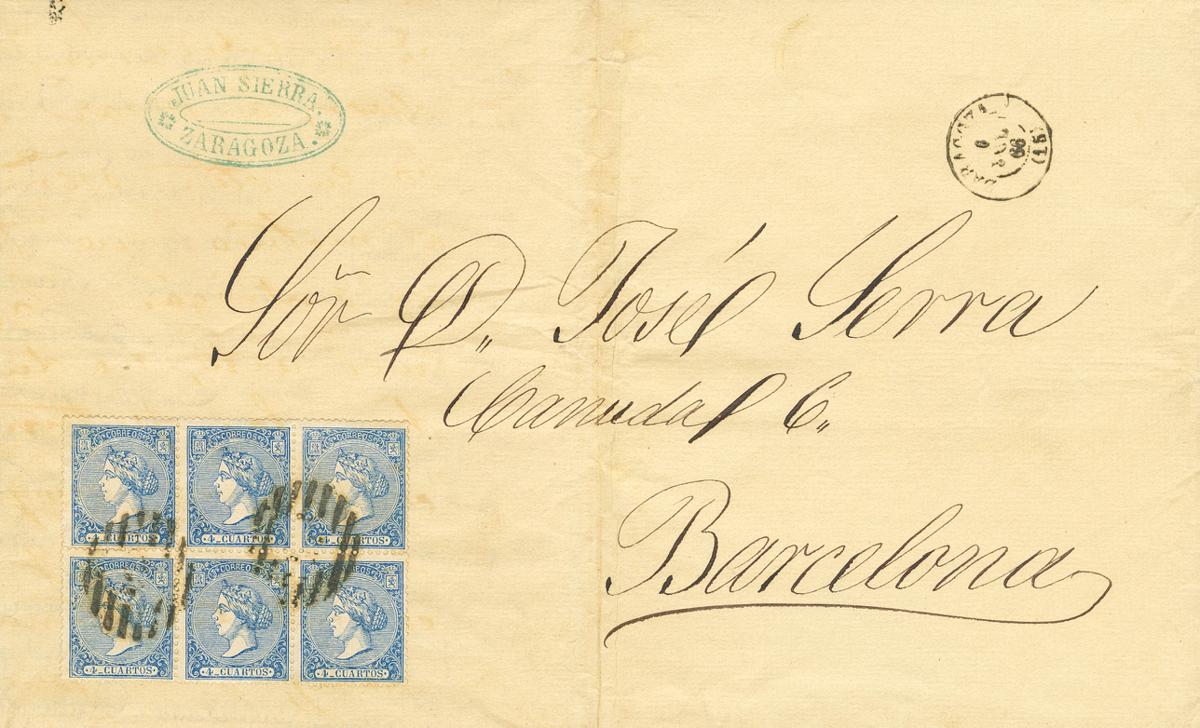 JUAN SIERRA.
ZARAGOZA.
ZARAGOZA.
6
66
(15)
Sōr D. José Serra
Canuda C.
Barcelona
CORREOS
CORREOS
CORREOS
4_CUARTOS
4_CUARTOS
4_CUARTOS
CORREOS
CORREOS
CORREOS
4_CUARTOS
4_CUARTOS
4_CUARTOS